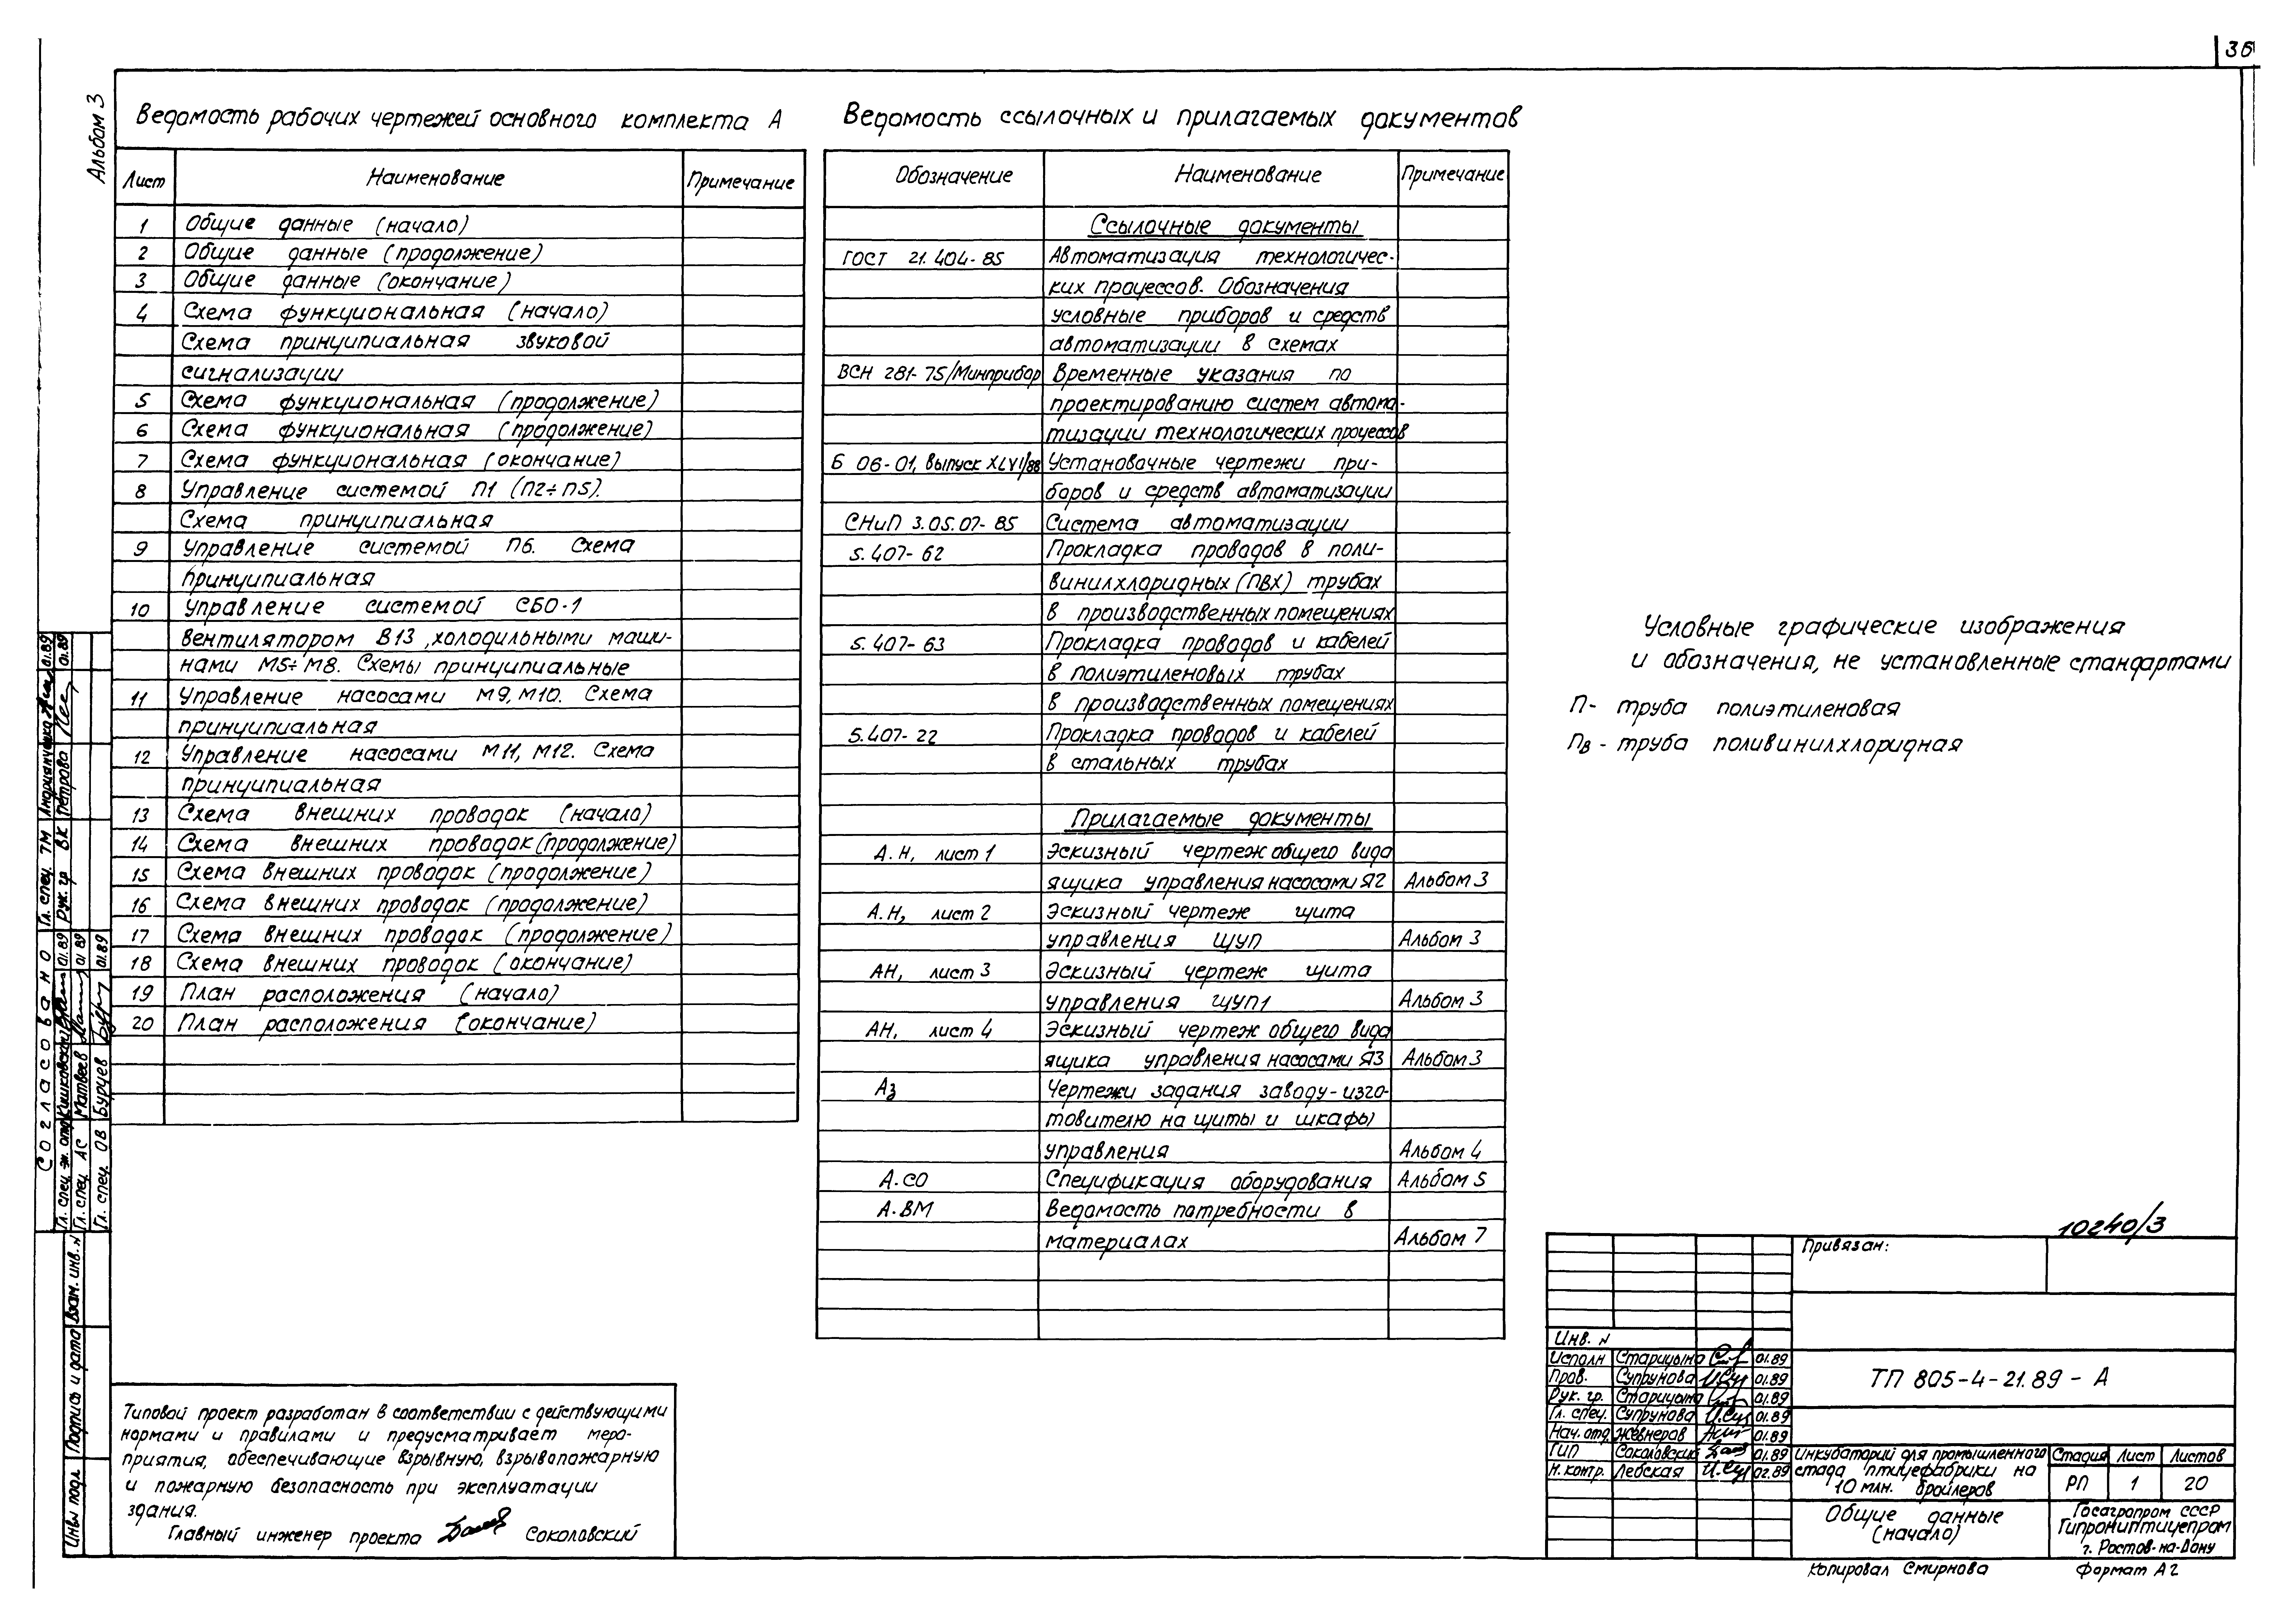 36
Альбом 3
Ведомость рабочих чертежей основного комплекта А
Лист Наименование Примечание
1 Общие данные (начало)
2 Общие данные (продолжение)
3 Общие данные (окончание)
4 Схема функциональная (начало)
Схема принципиальная звуковой
сигнализации
5 Схема функциональная (продолжение)
6 Схема функциональная (продолжение)
7 Схема функциональная (окончание)
8 Управление системой П1 (П2÷П5).
Схема принципиальная
9 Управление системой П6. Схема
принципиальная
10 Управление системой СБО-1
вентилятором В13, холодильными маши-
нами М5÷М8. Схемы принципиальные
11 Управление насосами М9, М10. Схема
принципиальная
12 Управление насосами М11, М12. Схема
принципиальная
13 Схема внешних проводок (начало)
14 Схема внешних проводок (продолжение)
15 Схема внешних проводок (продолжение)
16 Схема внешних проводок (продолжение)
17 Схема внешних проводок (продолжение)
18 Схема внешних проводок (окончание)
19 План расположения (начало)
20 План расположения (окончание)
Ведомость ссылочных и прилагаемых документов
Обозначение Наименование Примечание
Ссылочные документы
ГОСТ 21.404-85 Автоматизация технологичес-
ких процессов. Обозначения
условные приборов и средств
автоматизации в схемах
ВСН 281-75/Минприбор Временные указания по
проектированию систем автома-
тизации технологических процессов
Б 06-01, выпуск XLVI/88 Установочные чертежи при-
боров и средств автоматизации
СНиП 3.05.07-85 Система автоматизации
5.407-62 Прокладка проводов в поли-
винилхлоридных (ПВХ) трубах
в производственных помещениях
5.407-63 Прокладка проводов и кабелей
в полиэтиленовых трубах
в производственных помещениях
5.407-22 Прокладка проводов и кабелей
в стальных трубах
Прилагаемые документы
А.Н, лист 1 Эскизный чертеж общего вида
ящика управления насосами Я2 Альбом 3
А.Н, лист 2 Эскизный чертеж щита
управления ЩУП Альбом 3
АН, лист 3 Эскизный чертеж щита
управления ЩУП1 Альбом 3
АН, лист 4 Эскизный чертеж общего вида
ящика управления насосами Я3 Альбом 3
Аз Чертежи задания заводу-изго-
товителю на щиты и шкафы
управления Альбом 4
А.СО Спецификация оборудования Альбом 5
А.ВМ Ведомость потребности в
материалах Альбом 7
Условные графические изображения
и обозначения, не установленные стандартами
П- труба полиэтиленовая
Пв - труба поливинилхлоридная
Согласовано
Гл. спец. ТМ 01.89
Рук. гр ВК Петрова 01.89
Гл. спец. эл. отд. 01.89
Гл. спец АС Матвеев 01.89
Гл. спец. ОВ Бурцев 01.89
Взам. инв. N
Подпись и дата
Инв N подл.
Типовой проект разработан в соответствии с действующими
нормами и правилами и предусматривает меро-
приятия, обеспечивающие взрывную, взрывопожарную
и пожарную безопасность при эксплуатации
здания.
Главный инженер проекта Соколовский
10240/3
Привязан:
Инв. N
Исполн Старицына 01.89
Пров. Супрунова 01.89
Рук. гр. Старицына 01.89
Гл. спец. Супрунова 01.89
Нач. отд. Жевнеров 01.89
ГИП Соколовский 01.89
Н.контр. Лебская 02.89
ТП 805-4-21.89 - А
Инкубаторий для промышленного
стада птицефабрики на
10 млн. бройлеров
Стадия Лист Листов
РП 1 20
Общие данные
(начало)
Госагропром СССР
Гипрониптицепром
г. Ростов-на-Дону
Копировал Смирнова
Формат А2